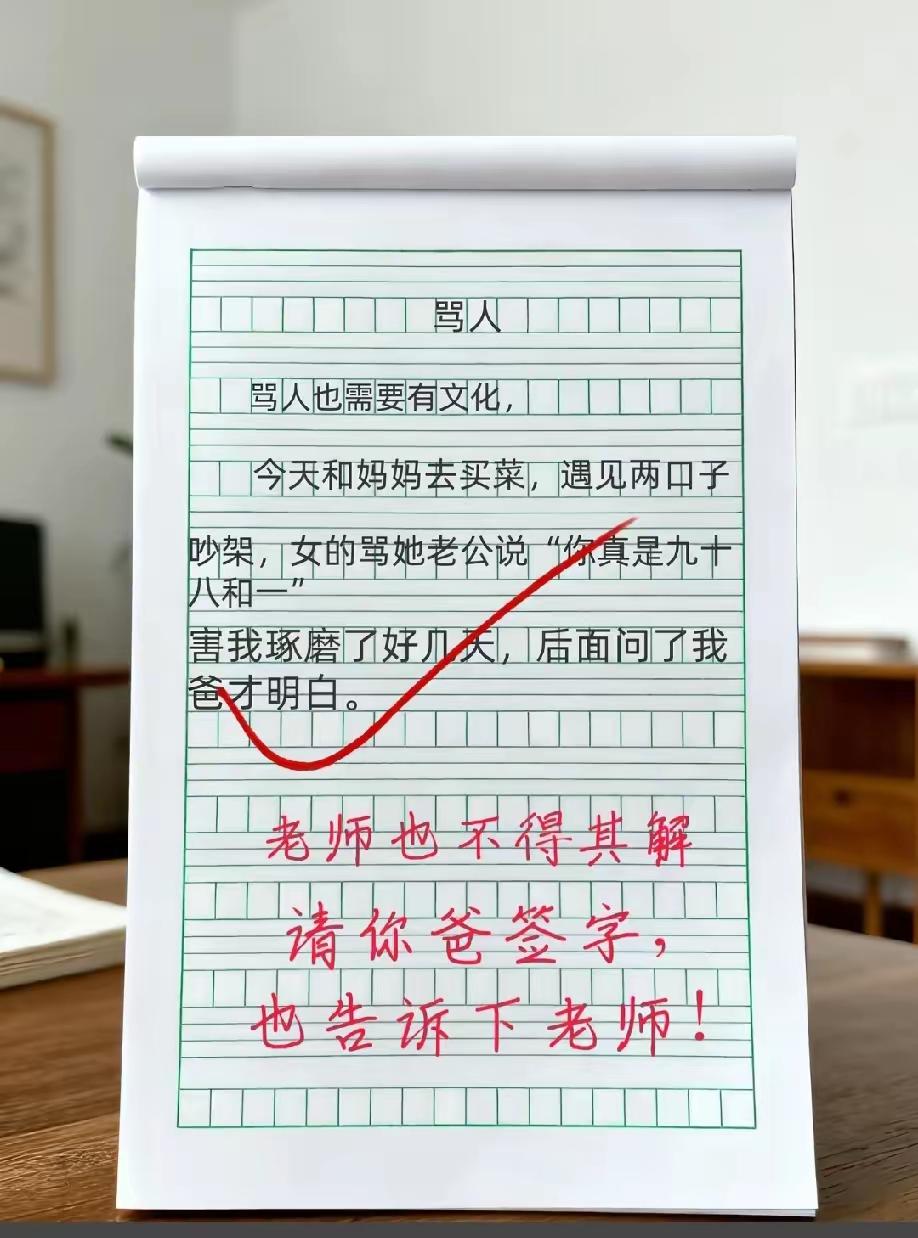 骂人
骂人也需要有文化，
今天和妈妈去买菜，遇见两口子
吵架，女的骂她老公说“你真是九十
八和一”
害我琢磨了好几天，后面问了我
爸才明白。
老师也不得其解
请你爸签字，
也告诉下老师！